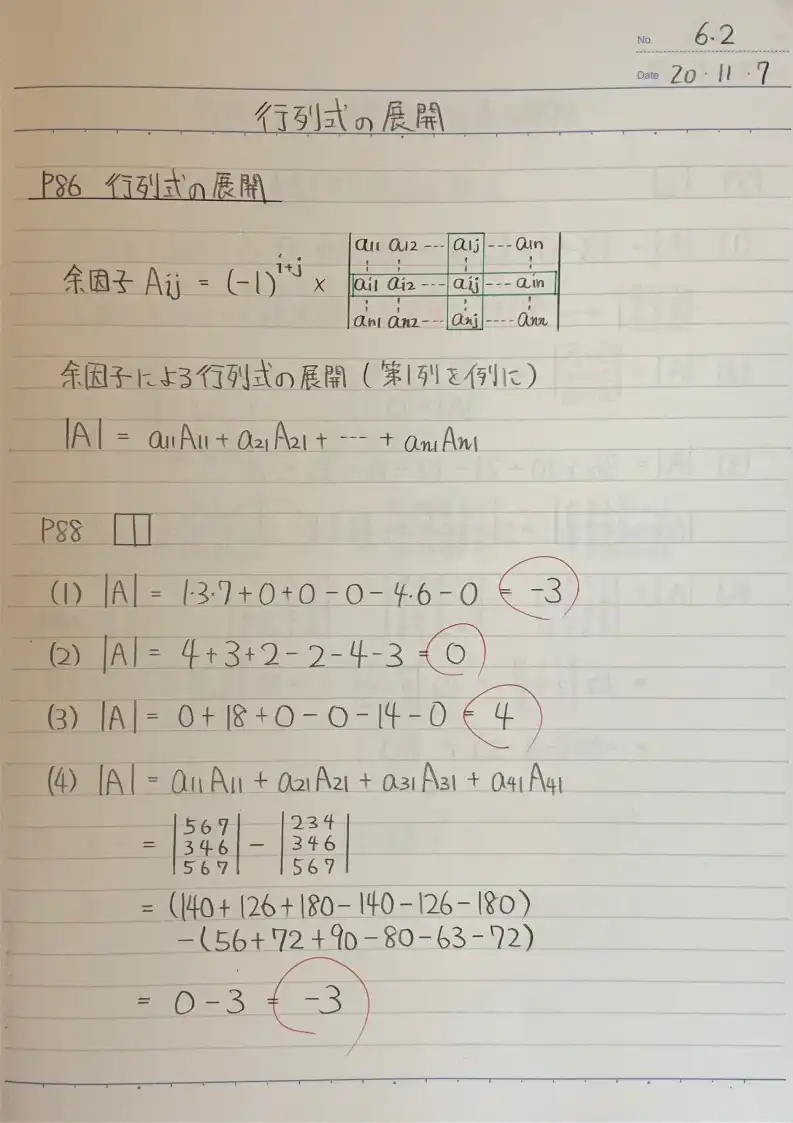 No. 6.2
Date 20・11・7
行列式の展開
P86 行列式の展開
余因子 Aij = (-1)^{i+j} ×
a11 a12 --- a1j --- a1n
ai1 ai2 --- aij --- ain
an1 an2 --- anj ---- ann
余因子による行列式の展開(第1列を例に)
|A| = a11A11 + a21A21 + --- + an1An1
P88 1
(1) |A| = 1・3・7+0+0-0-4・6-0 = -3
(2) |A| = 4+3+2-2-4-3 = 0
(3) |A| = 0+18+0-0-14-0 = 4
(4) |A| = a11A11 + a21A21 + a31A31 + a41A41
= |5 6 7| - |2 3 4|
|3 4 6| |3 4 6|
|5 6 7| |5 6 7|
= (140+126+180-140-126-180)
-(56+72+90-80-63-72)
= 0-3 = -3